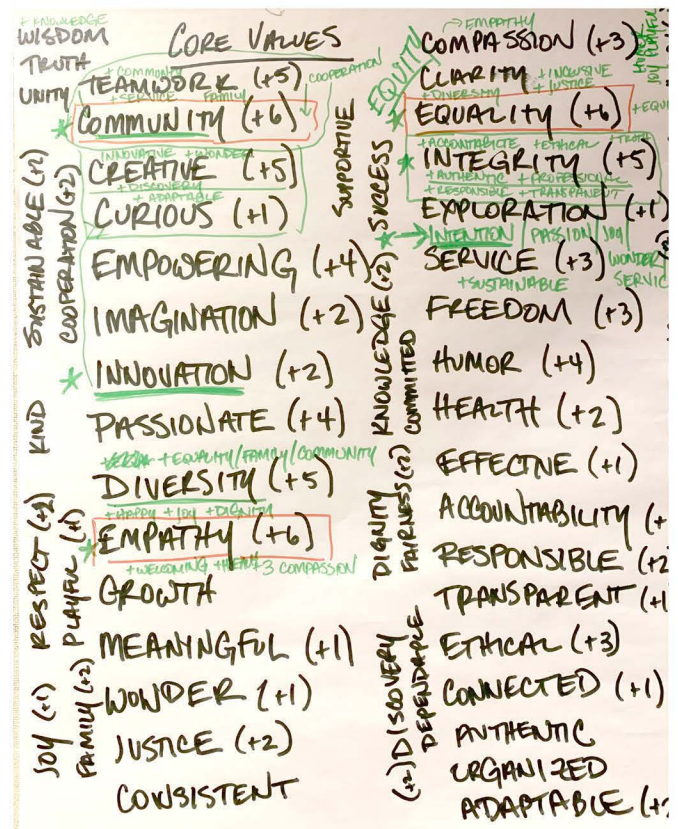 + KNOWLEDGE
WISDOM
TRUTH
UNITY
CORE VALUES
+ COMMUNITY
TEAMWORK (+5)
COOPERATION
+ SERVICE FAMILY
COMMUNITY (+6)
INNOVATIVE + WONDER
CREATIVE (+5)
+ DISCOVERY
+ ADAPTABLE
CURIOUS (+1)
EMPOWERING (+4)
IMAGINATION (+2)
INNOVATION (+2)
PASSIONATE (+4)
+ EQUALITY/FAMILY/COMMUNITY
DIVERSITY (+5)
+ HAPPY + JOY + DIGNITY
EMPATHY (+6)
+ WELCOMING
3 COMPASSION
GROWTH
MEANINGFUL (+1)
WONDER (+1)
JUSTICE (+2)
CONSISTENT
SUSTAINABLE (+2)
COOPERATION (+2)
KIND
RESPECT (+2)
PLAYFUL (+1)
JOY (+1)
FAMILY (+2)
SUPPORTIVE
SUCCESS
KNOWLEDGE (+2)
COMMITTED
DIGNITY
FAIRNESS (+2)
(+2) DISCOVERY
DEPENDABLE
EQUITY
→ EMPATHY
COMPASSION (+3)
HUMOR
JOY PLAYFUL
CLARITY
+ INCLUSIVE
+ JUSTICE
+ DIVERSITY
EQUALITY (+6)
+ EQUI
+ ACCOUNTABLE + ETHICAL + TRUTH
INTEGRITY (+5)
+ AUTHENTIC + PROFESSIONAL
+ RESPONSIBLE + TRANSPARENT
EXPLORATION (+1)
→ INTENTION / PASSION / JOY /
SERVICE (+3)
WONDER
SERVIC
+ SUSTAINABLE
FREEDOM (+3)
HUMOR (+4)
HEALTH (+2)
EFFECTIVE (+1)
ACCOUNTABILITY (+
RESPONSIBLE (+2
TRANSPARENT (+1
ETHICAL (+3)
CONNECTED (+1)
AUTHENTIC
ORGANIZED
ADAPTABLE (+